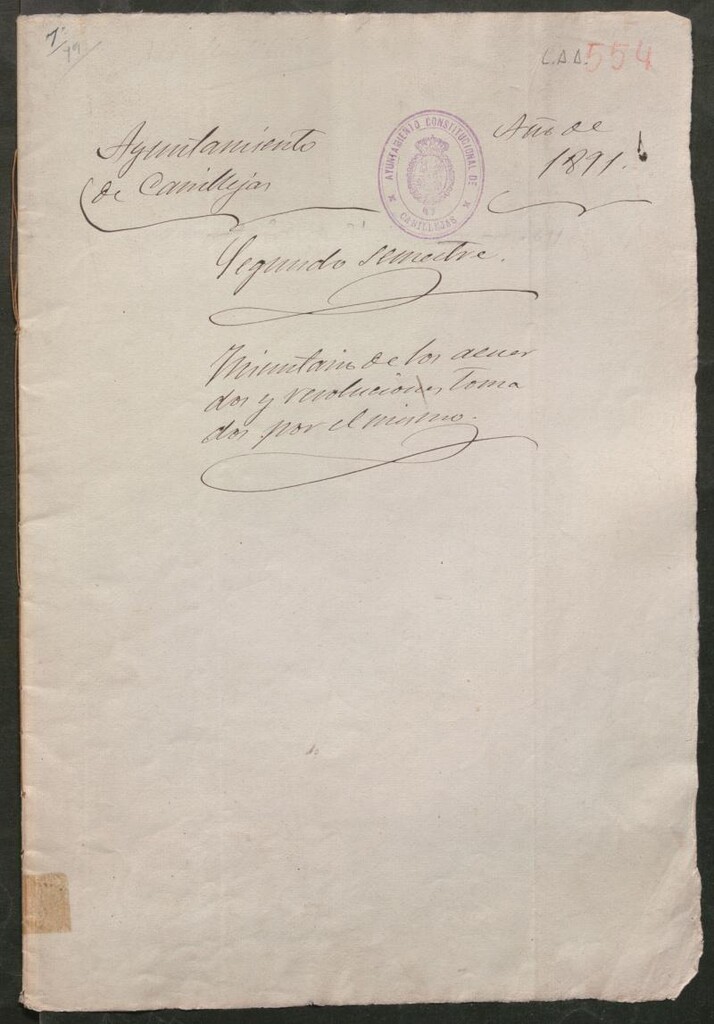 C.A.A. 554
Ayuntamiento
de Canillejas
AYUNTAMIENTO CONSTITUCIONAL DE
CANILLEJAS
Año de
1891.
Segundo semestre.
Inventario de los acuer
dos y resoluciones toma
dos por el mismo.